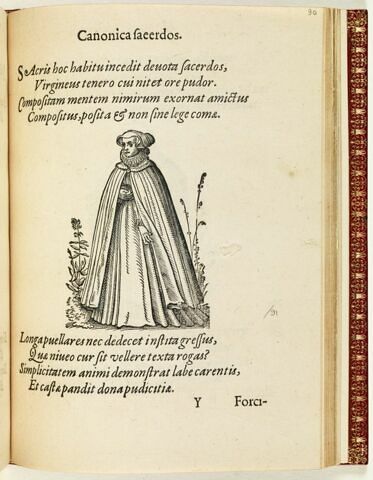 90
Canonica sacerdos.
SAcris hoc habitu incedit deuota sacerdos,
Virgineus tenero cui nitet ore pudor.
Compositam mentem nimirum exornat amictus
Compositus, posita & non sine lege comæ.
Longa puellares nec dedecet instita gressus,
Quæ niueo cur sit vellere texta rogas?
Simplicitatem animi demonstrat labe carentis,
Et castæ pandit dona pudicitiæ.
Y Forci-